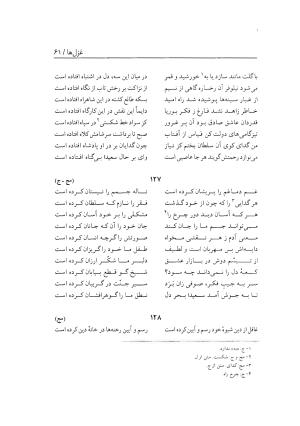 غزل‌ها / ۶۱
با گلت مانند سازد یا به ۱ خورشید و قمر در میان این سه، دل در اشتباه افتاده است
نیلوفر آن رخساره گاهی از نسیم از نزاکت بر رخش تاب از نگاه افتاده است
غبار سینه‌ها پوشیده شد راه امید بسکه طالع گشته در این شاهراه افتاده است
خاطر زاهد نشد فارغ ز فکر بوریا دایماً این نقش در این کارگاه افتاده است
قدردان عاشق صادق بود آن پر غرور کز سواد خط شکستش ۲ در سپاه افتاده است
تیزگامی‌های دولت کن قیاس از آفتاب صبح تا برداشت سر شامش کلاه افتاده است
من گدای کوی آن سلطان بختم کز نیاز چون گدایان بر در او پادشاه افتاده است
می‌نوازد رحمتش گرچه هر جا عاصی است وای بر حال سعیدا بی‌گناه افتاده است
۱۲۷
(مج - ج)
غم دماغم را پریشان کرده است ناله جسمم را نیستان کرده است
هر گدایی ۳ را که چون از خود گذشت فقر را نازم که سلطان کرده است
هر که آسان دید دور چرخ را ۴ مشکلی را بر خود آسان کرده است
می‌تواند جسم ما را جان کند جان خود را آن که جانان کرده است
معنی آدم ز هر نقشی مخواه صورتش را گرچه انسان کرده است
داده‌ایش بر مهربان است و لطیف لطف خود را از گریزان کرده است
از تبسم دوش در بازار عشق دلبر ما شکر ارزان کرده است
کعبهٔ دل را نمی‌داند که چه سود؟ شیخ گو قطع بیابان کرده است
سر به جیب فکر، صوفی زان برد سیر جنت در گریبان کرده است
تا به جوش آمد سعیدا بحر دل نطق ما گوهرافشان کرده است
۱۲۸
(مج)
غافل از دین شیوهٔ خود رسم و آیین کرده است رسم و آیین رخنه‌ها در خانهٔ دین کرده است
۱- ج: دیده ندارد.
۲- مج و ج: شکست. متن از ل.
۳- مج: گدای. متن از ج.
۴- ج: چرخ راه